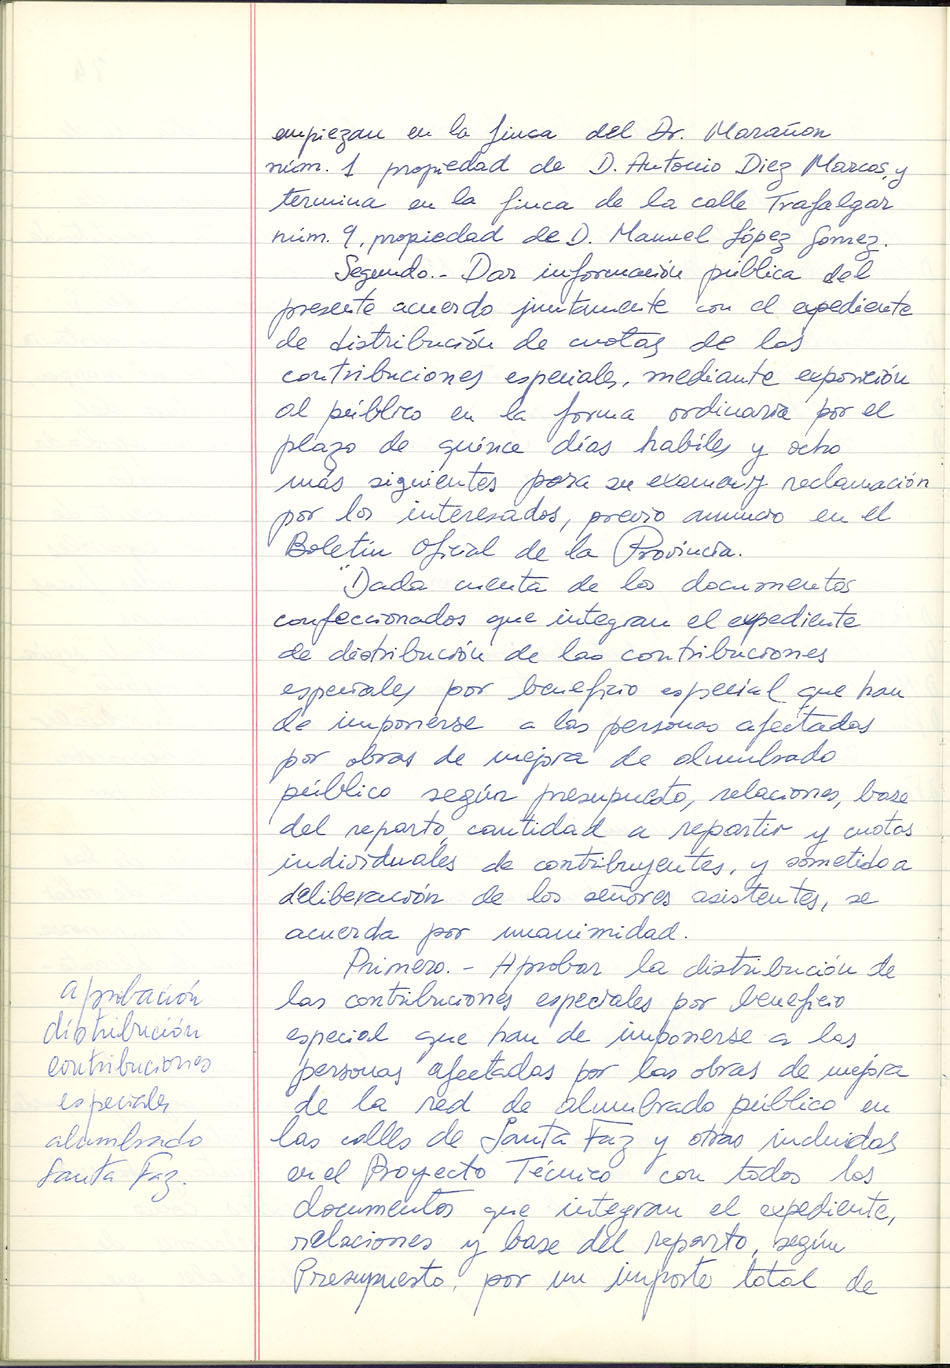 empiezan en la finca del Dr. Marañon
núm. 1 propiedad de D. Antonio Diez Marcos, y
termina en la finca de la calle Trafalgar
núm. 9, propiedad de D. Manuel López Gomez.
Segundo.- Dar información pública del
presente acuerdo juntamente con el expediente
de distribución de cuotas de las
contribuciones especiales, mediante exposición
al público en la forma ordinaria por el
plazo de quince días habiles y ocho
más siguientes para su examen y reclamación
por los interesados, previo anuncio en el
Boletín Oficial de la Provincia.
"Dada cuenta de los documentos
confeccionados que integran el expediente
de distribución de las contribuciones
especiales por beneficio especial que han
de imponerse a las personas afectadas
por obras de mejora de alumbrado
público según presupuesto, relaciones, base
del reparto, cantidad a repartir y cuotas
individuales de contribuyentes, y sometido a
deliberación de los señores asistentes, se
acuerda por unanimidad.
Primero.- Aprobar la distribución de
las contribuciones especiales por beneficio
especial que han de imponerse a las
personas afectadas por las obras de mejora
de la red de alumbrado público en
las calles de Santa Faz y otras incluidas
en el Proyecto Técnico con todos los
documentos que integran el expediente,
relaciones y base del reparto, según
Presupuesto, por un importe total de
aprobación
distribución
contribuciones
especiales
alumbrado
Santa Faz.